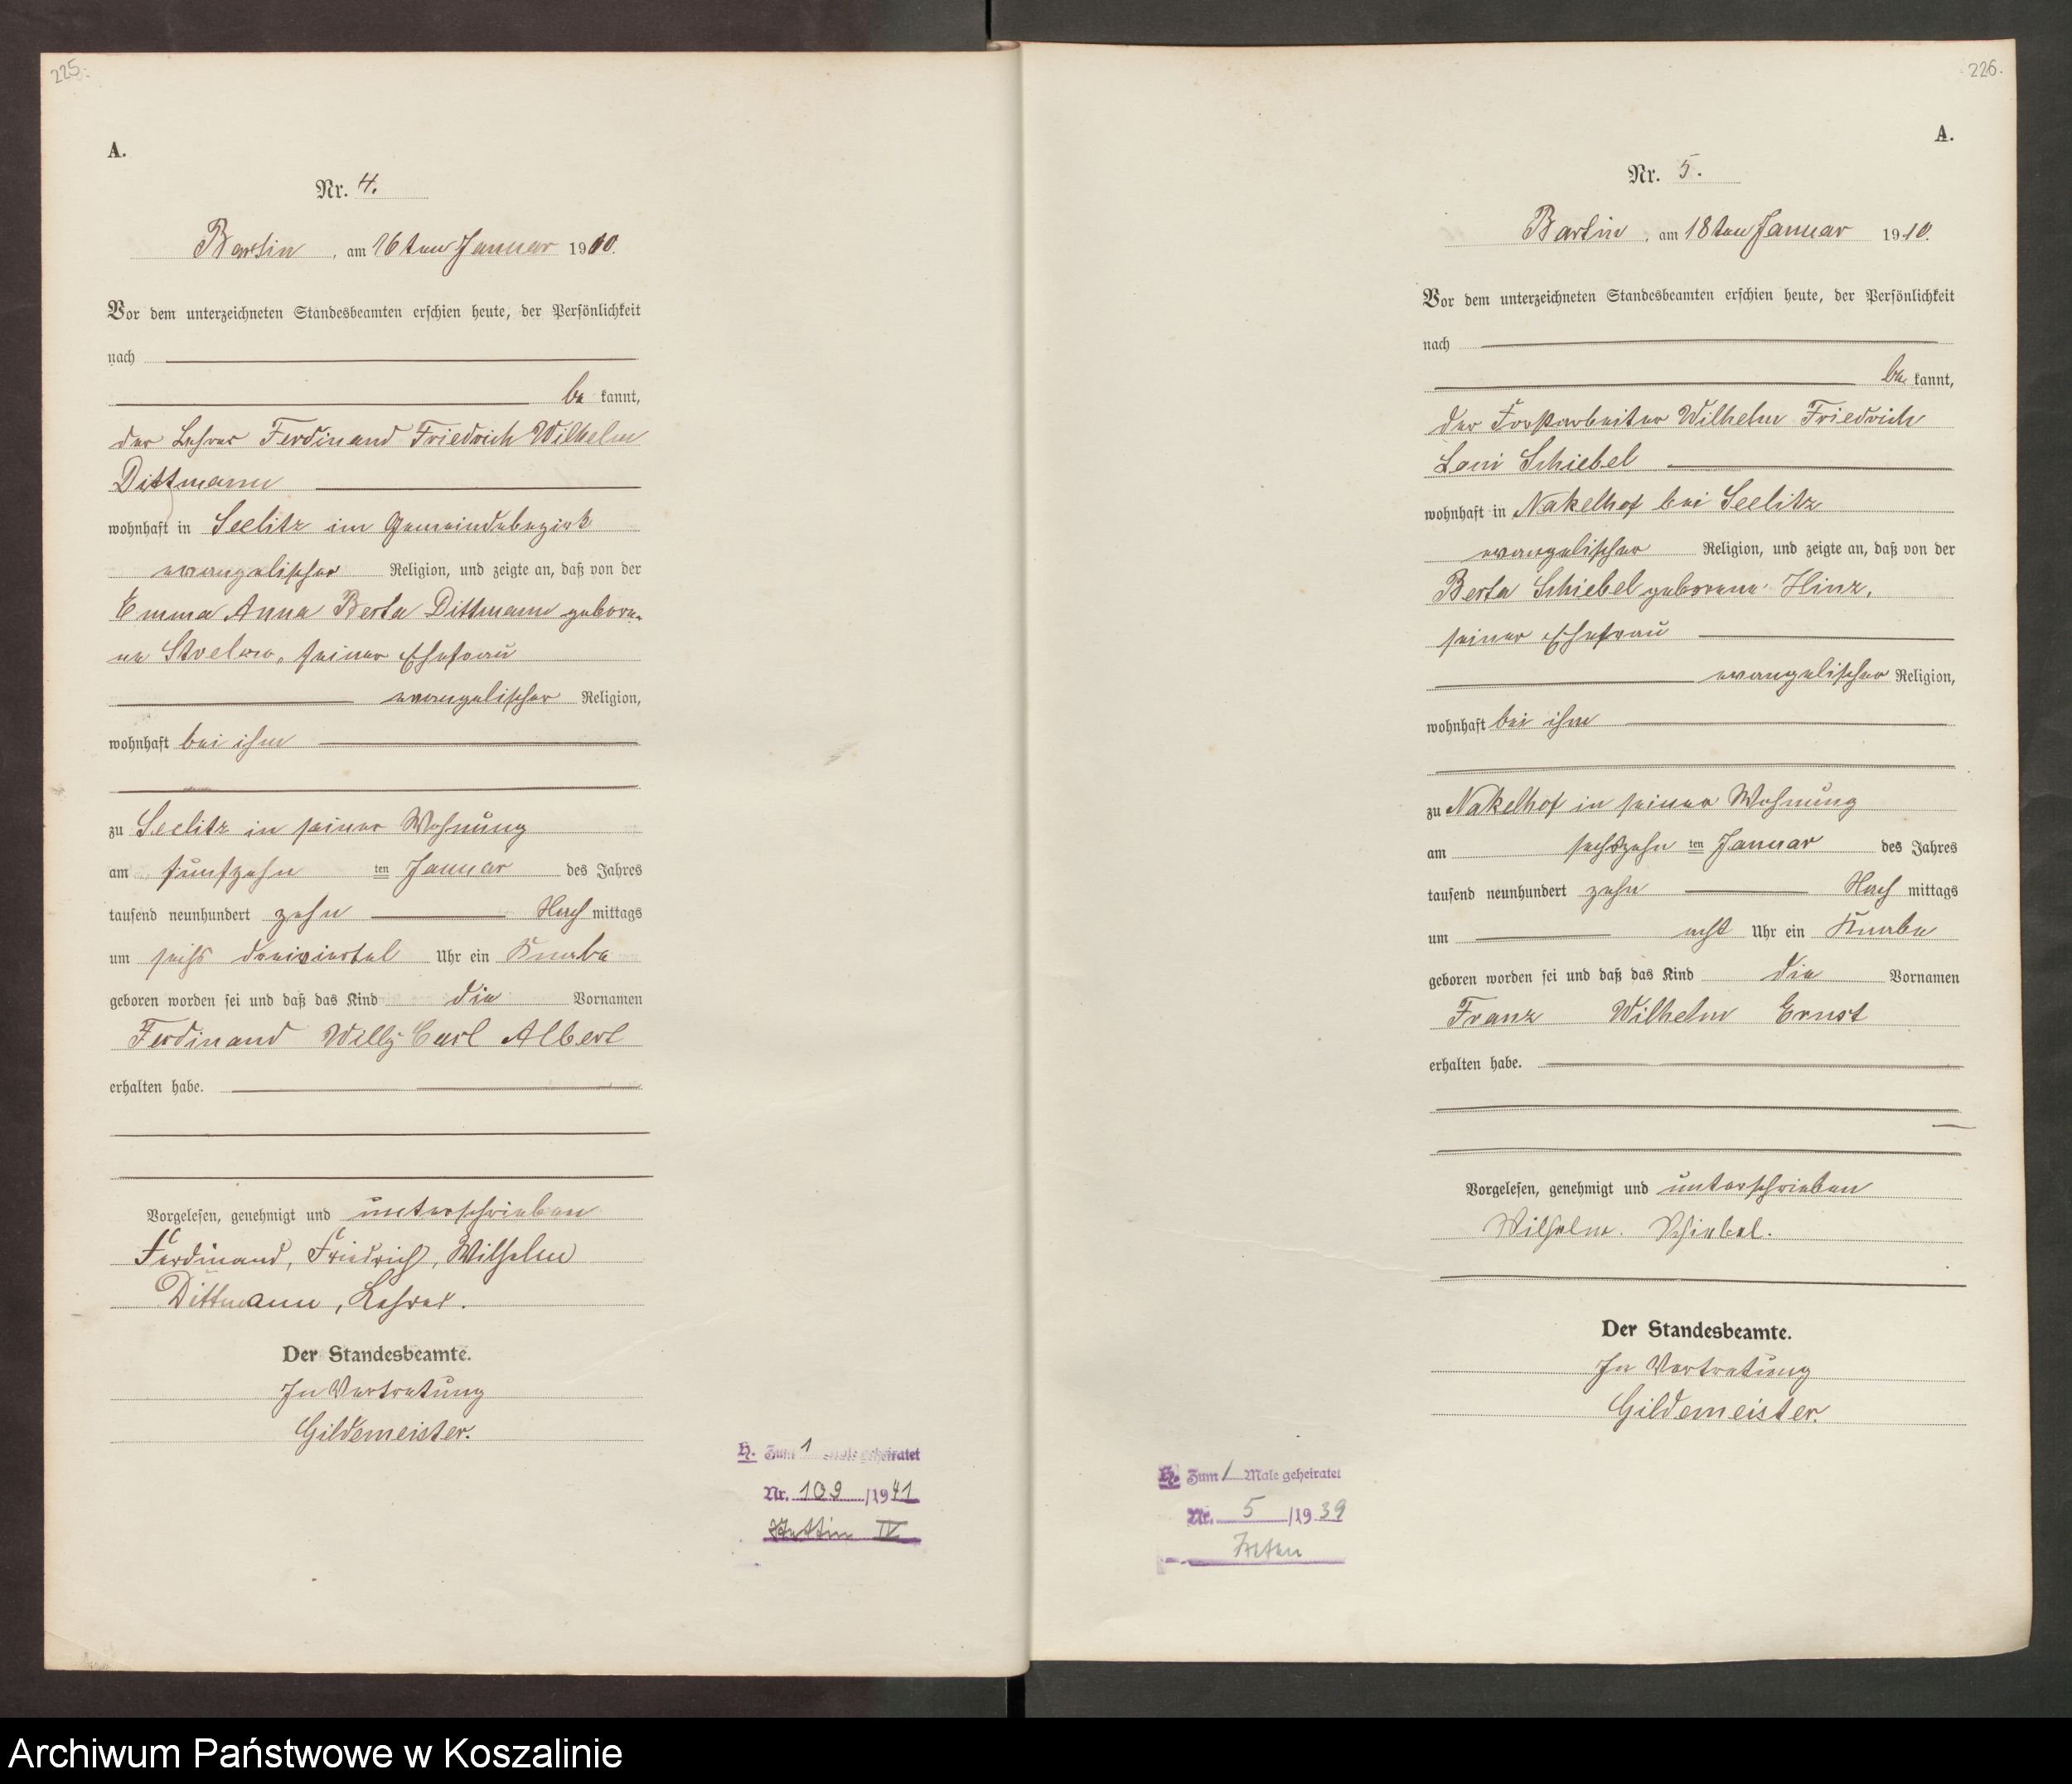 225.
A.
Nr. 4.
Bartin, am 16ten Januar 1910.
Vor dem unterzeichneten Standesbeamten erschien heute, der Persönlichkeit
nach
bekannt,
der Lehrer Ferdinand Friedrich Wilhelm
Dittmann
wohnhaft in Seelitz im Gemeindebezirk
evangelischer Religion, und zeigte an, daß von der
Emma Anna Berta Dittmann gebore-
ne, seiner Ehefrau
evangelischer Religion,
wohnhaft bei ihm
zu Seelitz in seiner Wohnung
am fünfzehn ten Januar des Jahres
tausend neunhundert zehn Nachmittags
um sechs dreiviertel Uhr ein Knabe
geboren worden sei und daß das Kind die Vornamen
Ferdinand Willy Carl Albert
erhalten habe.
Vorgelesen, genehmigt und unterschrieben
Ferdinand, Friedrich, Wilhelm
Dittmann, Lehrer.
Der Standesbeamte.
In Vertretung
Gildemeister.
H. Zum 1 Male geheiratet
Nr. 109 /1941
Stettin IV
226.
A.
Nr. 5.
Bartin, am 18ten Januar 1910.
Vor dem unterzeichneten Standesbeamten erschien heute, der Persönlichkeit
nach
bekannt,
der Forstarbeiter Wilhelm Friedrich
Schiebel
wohnhaft in Nakelhof bei Seelitz
evangelischer Religion, und zeigte an, daß von der
Berta Schiebel geborene Hinz,
seiner Ehefrau
evangelischer Religion,
wohnhaft bei ihm
zu Nakelhof in seiner Wohnung
am sechszehn ten Januar des Jahres
tausend neunhundert zehn Nachmittags
um acht Uhr ein Knabe
geboren worden sei und daß das Kind die Vornamen
Franz Wilhelm Ernst
erhalten habe.
Vorgelesen, genehmigt und unterschrieben
Wilhelm. Schiebel.
Der Standesbeamte.
In Vertretung
Gildemeister.
H. Zum 1 Male geheiratet
Nr. 5 /1939
Archiwum Państwowe w Koszalinie